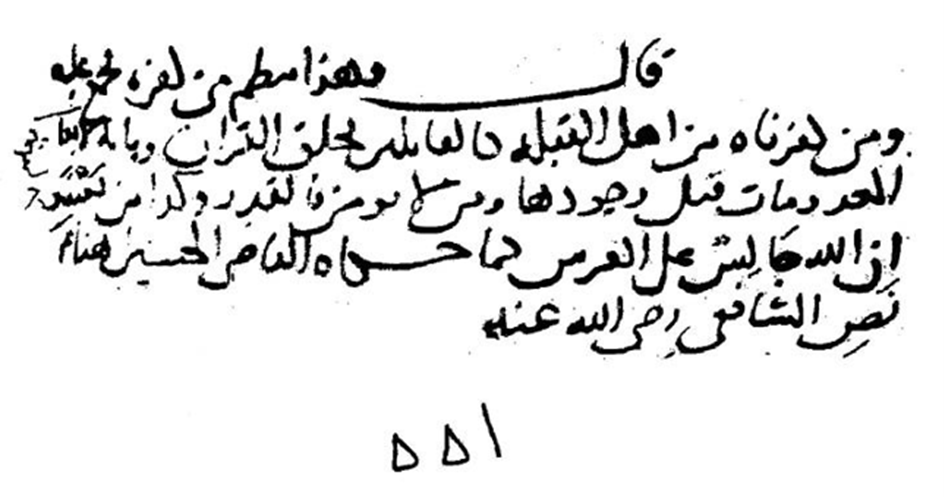 قال وهذا ينتظم من كفره مجمع عليه
ومن كفرناه من اهل القبلة كالقائلين بخلق القران وبانه لا يعلم
المعدومات قبل وجودها ومن لا يومن بالقدر وكذا من يعتقد
ان الله جالس على العرش كما حكاه القاضي الحسين هنا عن
نص الشافعي رضي الله عنه
٥٥١